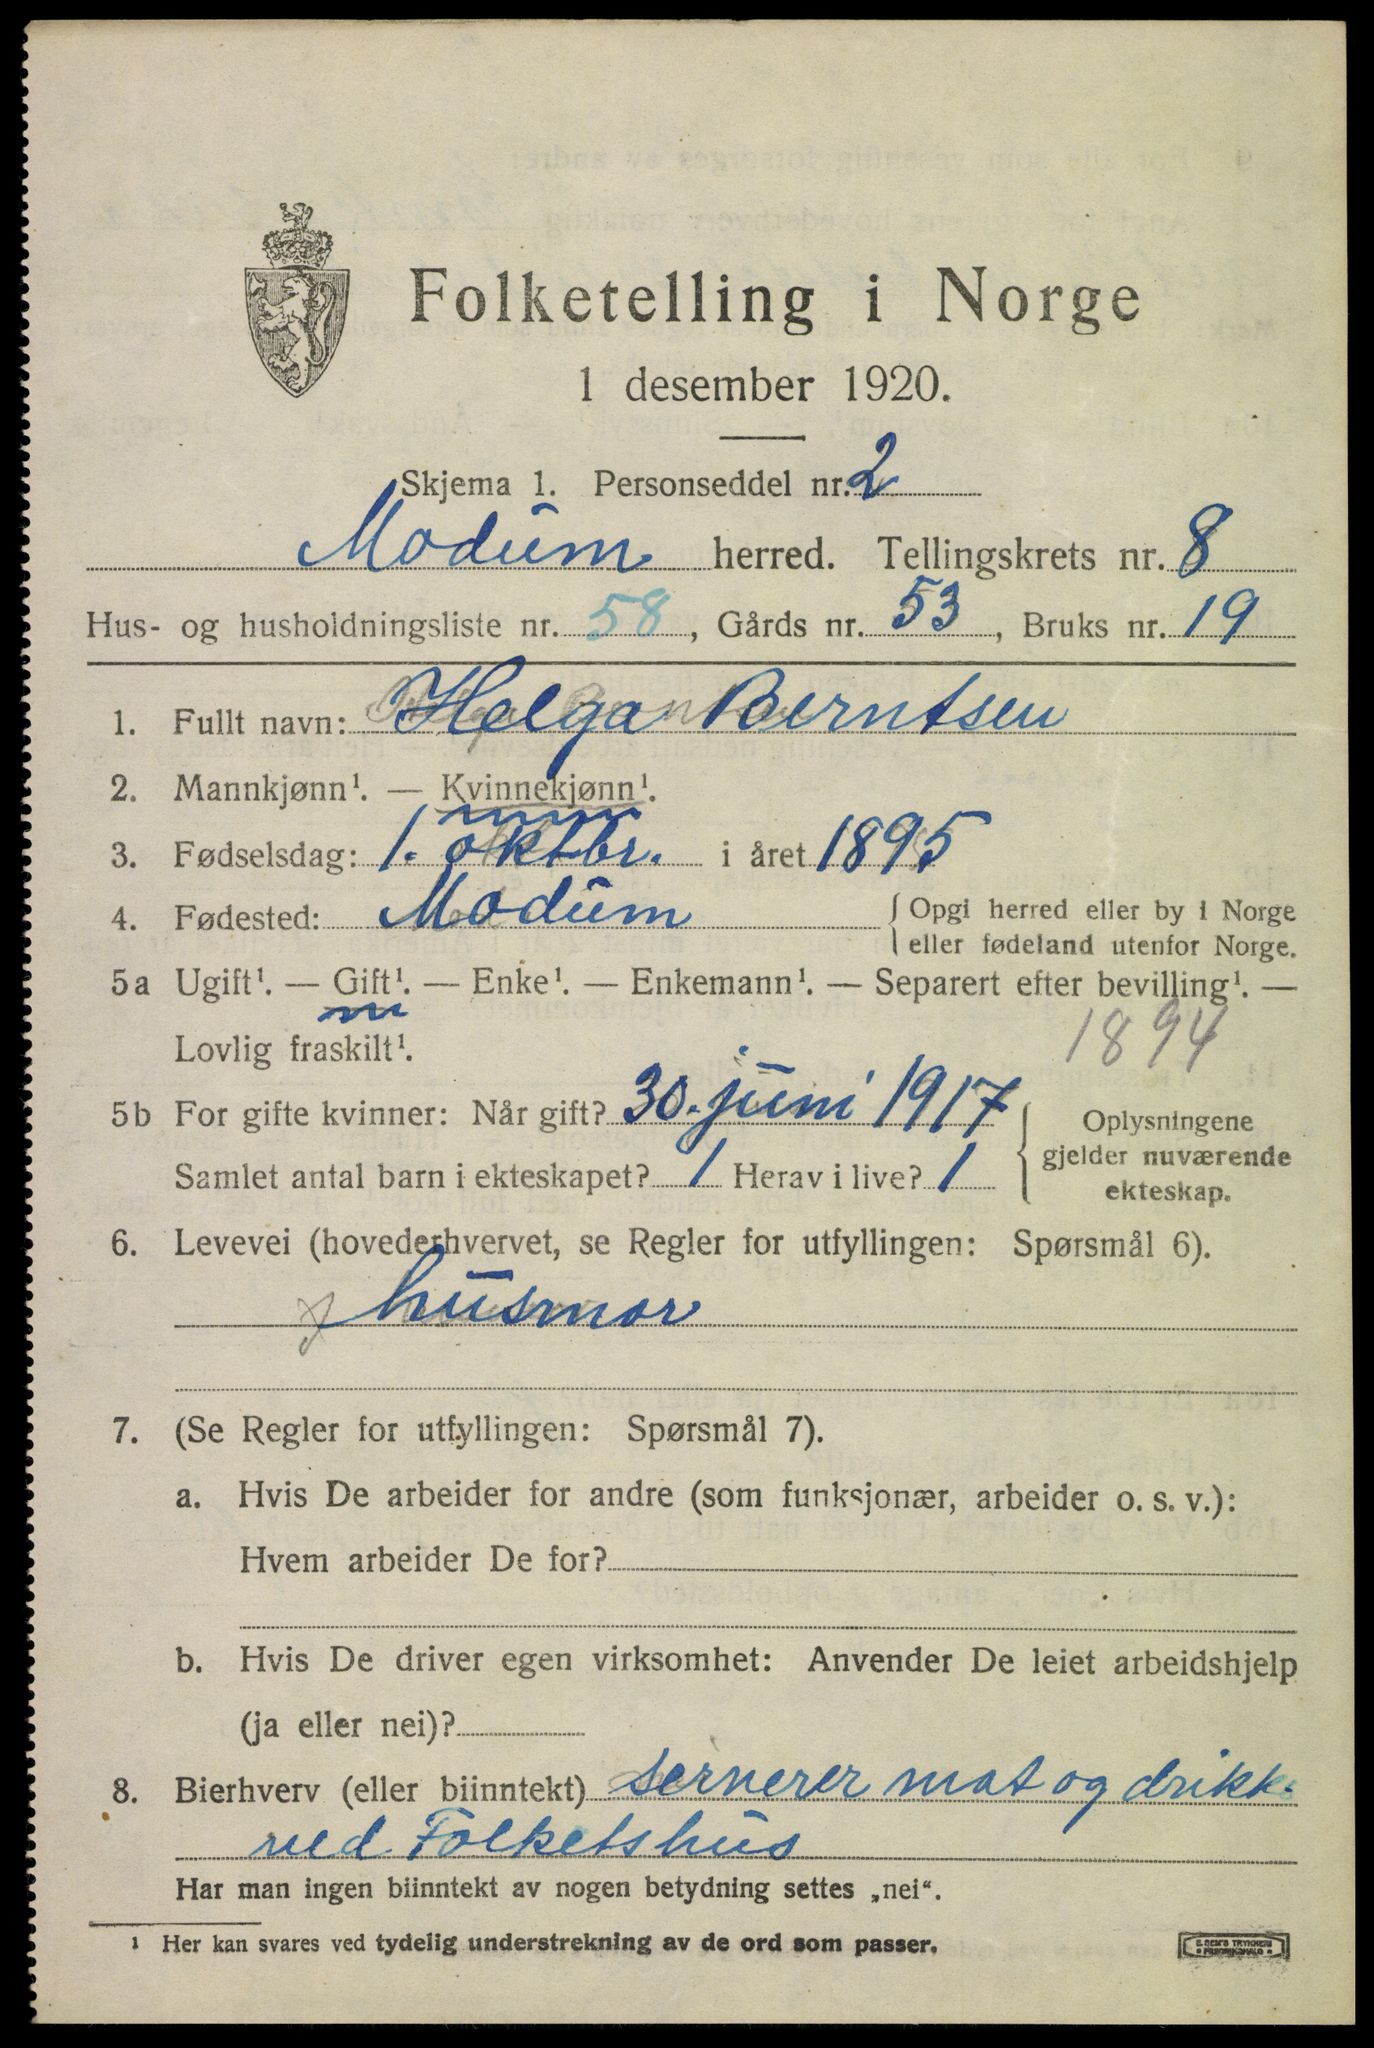 Folketelling i Norge
1 desember 1920.
Skjema 1. Personseddel nr. 2
Modum herred. Tellingskrets nr. 8
Hus- og husholdningsliste nr. 58, Gårds nr. 53, Bruks nr. 19
1. Fullt navn: Helga Berntsen
2. Mannkjønn¹. — Kvinnekjønn¹.
3. Fødselsdag: 1. oktbr. i året 1895
4. Fødested: Modum { Opgi herred eller by i Norge
eller fødeland utenfor Norge.
5a Ugift¹. — Gift¹. — Enke¹. — Enkemann¹. — Separert efter bevilling¹. —
Lovlig fraskilt¹. 1894
5b For gifte kvinner: Når gift? 30. juni 1917
Samlet antal barn i ekteskapet? 1 Herav i live? 1
{ Oplysningene
gjelder nuværende
ekteskap.
6. Levevei (hovederhvervet, se Regler for utfyllingen: Spørsmål 6).
husmor
7. (Se Regler for utfyllingen: Spørsmål 7).
a. Hvis De arbeider for andre (som funksjonær, arbeider o. s. v.):
Hvem arbeider De for?
b. Hvis De driver egen virksomhet: Anvender De leiet arbeidshjelp
(ja eller nei)?
8. Bierhverv (eller biinntekt) serverer mat og drikke
ved Folketshus
Har man ingen biinntekt av nogen betydning settes „nei“.
¹ Her kan svares ved tydelig understrekning av de ord som passer.
E. SEM'S TRYKKERI
FREDRIKSHALD